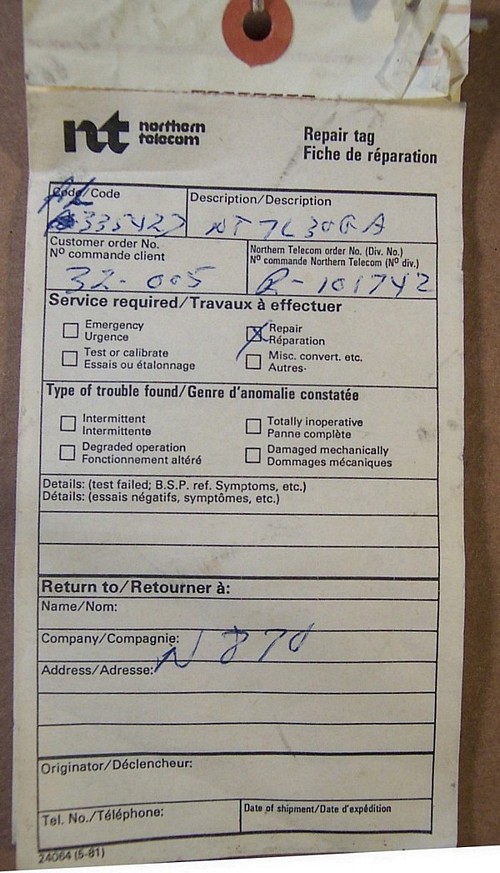 nt northern telecom
Repair tag
Fiche de réparation
Code/Code
Description/Description
335427
NT7L30GA
Customer order No.
Nº commande client
32-005
Northern Telecom order No. (Div. No.)
Nº commande Northern Telecom (Nº div.)
R-101742
Service required/Travaux à effectuer
Emergency
Urgence
Repair
Réparation
Test or calibrate
Essais ou étalonnage
Misc. convert. etc.
Autres·
Type of trouble found/Genre d'anomalie constatée
Intermittent
Intermittente
Totally inoperative
Panne complète
Degraded operation
Fonctionnement altéré
Damaged mechanically
Dommages mécaniques
Details: (test failed; B.S.P. ref. Symptoms, etc.)
Détails: (essais négatifs, symptômes, etc.)
Return to/Retourner à:
Name/Nom:
Company/Compagnie:
N 870
Address/Adresse:
Originator/Déclencheur:
Tel. No./Téléphone:
Date of shipment/Date d'expédition
24064 (5-81)